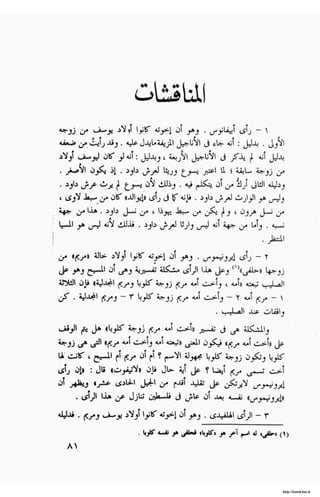 المناقشات
١ - رأى أبيفانيوس . وهو أن إخوته كانوا أولاد يوسف من زوجه
الأولى . بدليل : أنه جاء فى الأناجيل المزيفة مايدل عليه . وقد رأيت من ضعفه
أنه بدليل أنه لم يذكر فى الأناجيل الأربعة ، وبدليل : أنه لو كان ليوسف أولاد
من زوجة سابقة ؛ لما اعتبر يسوع وريثا لعرش داود . إذ يكون الأصغر .
ودليله الثانى أرى أن يتكلم فيه . وذلك لأن يسوع لم يرث عرش داود .
وليس هو الوارث لعرش داود . فإنه كما رأى «يوالد» كان من سبط لاوى ،
من نسل هرون ، ولم يكن من سبط يهوذا ، من نسل داود . هذا من جهة
نسبه . وأما من جهة أنه ليس وارثا لعرش داود . فذلك لأنه ليس هو المسيا
المنتظر .
٢ - رأى إيرونيموس . وهو أن إخوته كانوا أولاد خالة «مريم» من
زوجها «حلفى»(١) وعلى هذا الرأى مشكلة تفسيرية وهى أن المسيح وهو على
الصليب تبعته «أمه ، وأخت أمه مريم زوج كلوبا ومريم المجدلية فإن الثلاثة
١ - مريم أمه ٢ - وأخت أمه مريم زوج كلوبا ٣ - ومريم المجدلية . كن
واقفات عند الصليب .
والمشكلة هى فى تفسير «أخت أمه مريم زوج كلوبا» هل يتم الوقف
على «أخت أمه مريم» فيكون المعنى «تبعته أمه وأخت أمه مريم» التى هى زوجة
كلوبا وتكون زوج كلوبا مجهولة الاسم ؟ أم أن أم مريم أم المسيح ، كانت لها
أخت تسمى مريم أيضا ؟ على أية حال فإن «لايتفوت» قال : «إن رأى
إيرونيموس لايرتكن على تقليد أقدم من الجيل الحادى عشر» ويظهر أن
«إيرونيموس» نفسه بعد أن عاش فى فلسطين تنازل عن هذا الرأى .
٣ - الرأى الهلفيدى . وهو أن إخوته كانوا أولاد يوسف ومريم . فدليله
(١) «حلفى» له اسم آخر هو «كلوبا» فحلفى هو نفسه كلوبا .
٨١
http://kotob.has.it